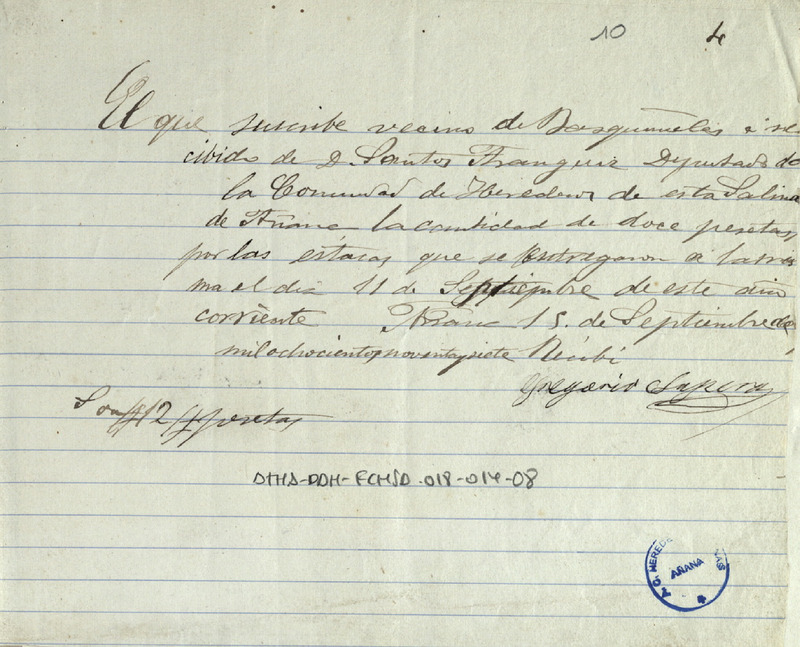 10 4
El que suscribe vecino de Basquiñuelas é re
cibido de D. Santos Frangüiz Diputado de
la Comunidad de Herederos de esta Salina
de Añana la cantidad de doce pesetas
por las estacas que se entregaron a la mis
ma el dia 11 de Septiembre de este año
corriente Añana 15. de Septiembre de
mil ochocientos noventa y siete Recibí
Gregorio
Son #12# pesetas
DTHA-DDH-FCHSD-018-014-08
AÑANA